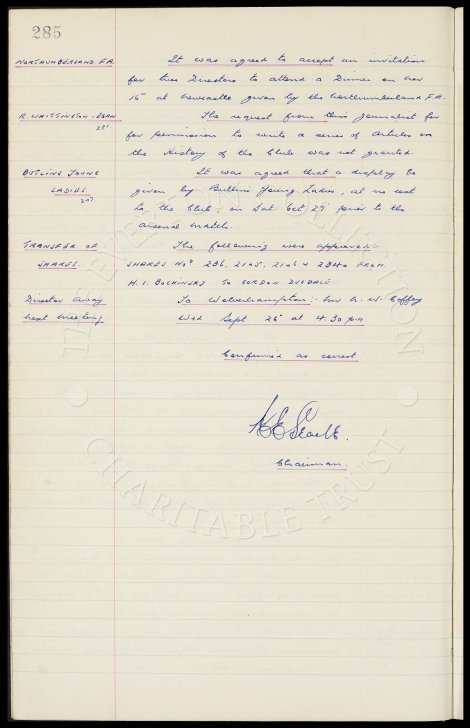 285
NORTHUMBERLAND. F.A. It was agreed to accept an invitation
for two Directors to attend a Dinner on Nov
16th at Newcastle given by the Northumberland F.A.
R. WHITTINGTON-EGAN The request from this journalist for
281
for permission to write a series of articles on
the History of the Club was not granted.
BUTLINS YOUNG It was agreed that a display be
LADIES. given by Butlins Young Ladies, at no cost
207
to the Club, on Sat Oct 27th prior to the
Arsenal match.
TRANSFER OF The following were approved:
SHARES. SHARES Nos 236, 2105, 2106 & 2340 FROM
H. I. BOCHINSKY TO GORDON DUGDALE.
Director away To Wolverhampton: Mr A. W. Coffey
next meeting Wed Sept 26th at 4.30 pm
Confirmed as correct
Chairman.
THE EVERTON COLLECTION
CHARITABLE TRUST